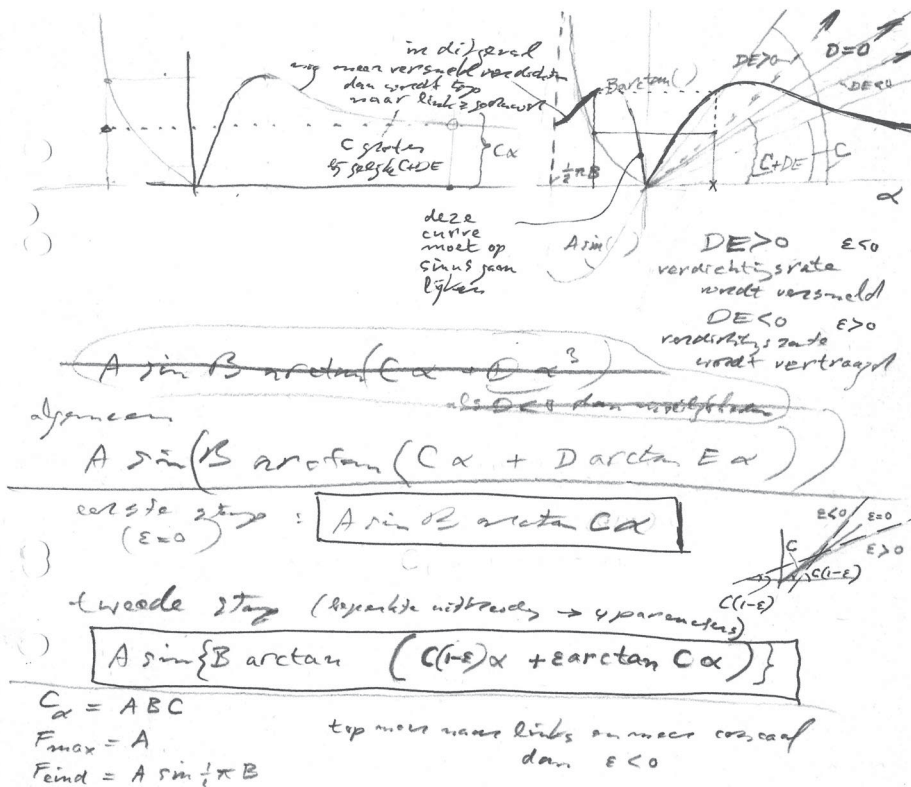 in dit geval
nog meer versneld verdichten
dan wordt top
naar links
C groter
bij gelijke C+DE
Cα
B arctan( )
½πB
DE>0
D=0
DE<0
C+DE
C
x
α
deze
curve
moet op
sinus gaan
lijken
A sin( )
DE>0 ε<0
verdichtingsrate
wordt versneld
DE<0 ε>0
verdichtingsrate
wordt vertraagd
A sin B arctan(Cα + D α³)
als D<0 dan
algemeen
A sin(B arctan(Cα + D arctan Eα))
eerste stap :
(ε=0)
A sin B arctan Cα
ε<0 ε=0
ε>0
C
C(1-ε)
C(1-ε)
tweede stap (beperkte uitbreiding → 4 parameters)
A sin{B arctan (C(1-ε)α + ε arctan Cα)}
Cα = ABC
Fmax = A
Feind = A sin ½πB
top meer naar links en meer
dan ε<0